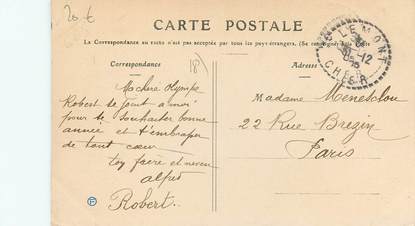 20 €
CARTE POSTALE
La Correspondance au recto n'est pas acceptée par tous les pays étrangers. (Se renseigner à la Poste
Correspondance
Adresse
18
31 -12
CHER
Ma chère Olympe
Robert se joint a moi
pour te souhaiter bonne
année et t'embrasser
de tout cœur
ton frère et neveu
alfred
Robert.
Madame Menesclou
22 Rue Brezin
Paris